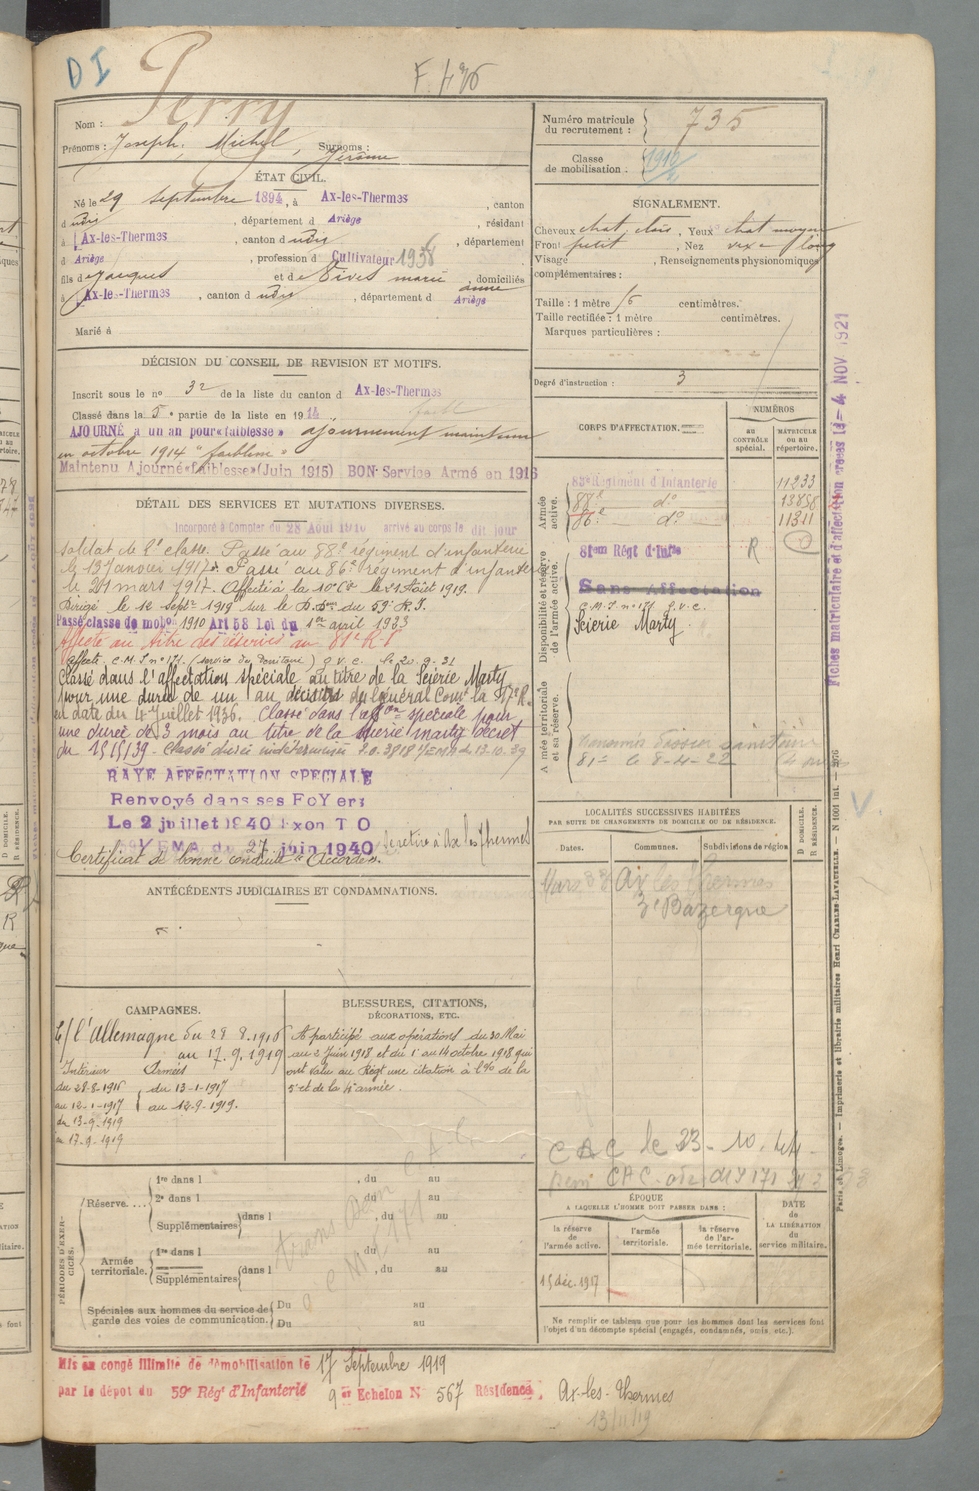 DI
F. 476
Nom : Perry
Prénoms : Joseph, Michel, Surnoms : Jérôme
ÉTAT CIVIL.
Né le 29 septembre 1894, à Ax-les-Thermes, canton
dudis, département d Ariège, résidant
à Ax-les-Thermes, canton dudis, département
d Ariège, profession de Cultivateur 1938
fils de Jacques et de Vives marie anne, domiciliés
à Ax-les-Thermes, canton dudis, département d Ariège
Marié à
DÉCISION DU CONSEIL DE REVISION ET MOTIFS.
Inscrit sous le no 32 de la liste du canton d Ax-les-Thermes
Classé dans la 5e partie de la liste en 1914
AJOURNÉ à un an pour «faiblesse» ajournement maintenu
en octobre 1914 "faiblesse"
Maintenu Ajourné «faiblesse» (Juin 1915) BON Service Armé en 1916
DÉTAIL DES SERVICES ET MUTATIONS DIVERSES.
Incorporé à Compter du 28 Août 1916 arrivé au corps le dit jour
soldat de 2e classe. Passé au 88e régiment d'infanterie
le 13 janvier 1917. Passé au 86e régiment d'infanterie
le 21 mars 1917. Affecté à la 10e Cie le 21 Août 1919.
Dirigé le 12 Sept 1919 sur le D.D. du 59e R.I.
Passé classe de mobon 1910 Art 58 Loi du 1er avril 1933
Affecté au titre des réserves au 81e R.I.
affecté C.M.I n°171 (service du Territoire) G.V.C. le 20.9.31
Classé dans l'affectation spéciale au titre de la Scierie Marty
pour une durée de un an décision du Général Comt la 17e R.
en date du 4 Juillet 1936. Classé dans l'affon spéciale pour
une durée de 3 mois au titre de la scierie marty décret
du 15/5/39 - Classé durée indéterminée
RAYE AFFECTATION SPECIALE
Renvoyé dans ses FoYers
Le 2 juillet 1940 Exon T O
1/EMA du 27 juin 1940 Se retire à Ax les Thermes
Certificat de bonne conduite "Accordé".
ANTÉCÉDENTS JUDICIAIRES ET CONDAMNATIONS.
CAMPAGNES.
C/ l'Allemagne du 28.8.1916
au 17.9.1919
Intérieur Armées
du 28-8-1916 du 13-1-1917
au 12-1-1917 au 12-9-1919.
du 13-9-1919
au 17-9-1919
BLESSURES, CITATIONS,
DÉCORATIONS, ETC.
A participé aux opérations du 30 Mai
au 2 Juin 1918 et du 1er au 14 octobre 1918 qui
ont valu au Régt une citation à l'% de la
5e et de la 4e armée.
PÉRIODES D'EXERCICES.
Réserve. ... 1re dans l , du au
2e dans l , du au
Supplémentaires dans l , du au
Armée territoriale. 1re dans l , du au
Supplémentaires dans l , du au
Spéciales aux hommes du service de
garde des voies de communication. Du au
Du au
Mis en congé illimité de démobilisation le 17 Septembre 1919
par le dépôt du 59e Régt d'Infanterie 9er Echelon N 567 Résidence, Ax-les-Thermes
13/11/19
Numéro matricule
du recrutement : 735
Classe
de mobilisation : 1916
SIGNALEMENT.
Cheveux chat. clair, Yeux chat moyen
Front petit, Nez long
Visage , Renseignements physionomiques
complémentaires :
Taille : 1 mètre 6 centimètres.
Taille rectifiée : 1 mètre centimètres.
Marques particulières :
Degré d'instruction : 3
CORPS D'AFFECTATION.
NUMÉROS
AU CONTRÔLE spécial.
MATRICULE ou au répertoire.
Armée active.
83e Régiment d'Infanterie 11233
88e do 13858
86e do 11311
Disponibilité et réserve de l'armée active.
81em Régt d'Infie R
Sans Affectation
C.M.I n°171 G.V.C.
Scierie Marty
Armée territoriale et sa réserve.
81e le 8-4-22
LOCALITÉS SUCCESSIVES HABITÉES
PAR SUITE DE CHANGEMENTS DE DOMICILE OU DE RÉSIDENCE.
Dates. Communes. Subdivisions de région
D DOMICILE.
R RÉSIDENCE.
Mars Ax les Thermes
Bazergue
CAC le 23-10.44.
ÉPOQUE
A LAQUELLE L'HOMME DOIT PASSER DANS :
la réserve de l'armée active.
l'armée territoriale.
la réserve de l'armée territoriale.
DATE de LA LIBÉRATION du service militaire.
15 déc. 1917
Ne remplir ce tableau que pour les hommes dont les services font
l'objet d'un décompte spécial (engagés, condamnés, omis, etc.).
Fiches matriculaire et d'affectation créées le - 4 NOV 1921
Paris et Limoges. — Imprimerie et librairie militaires Henri CHARLES-LAVAUZELLE.